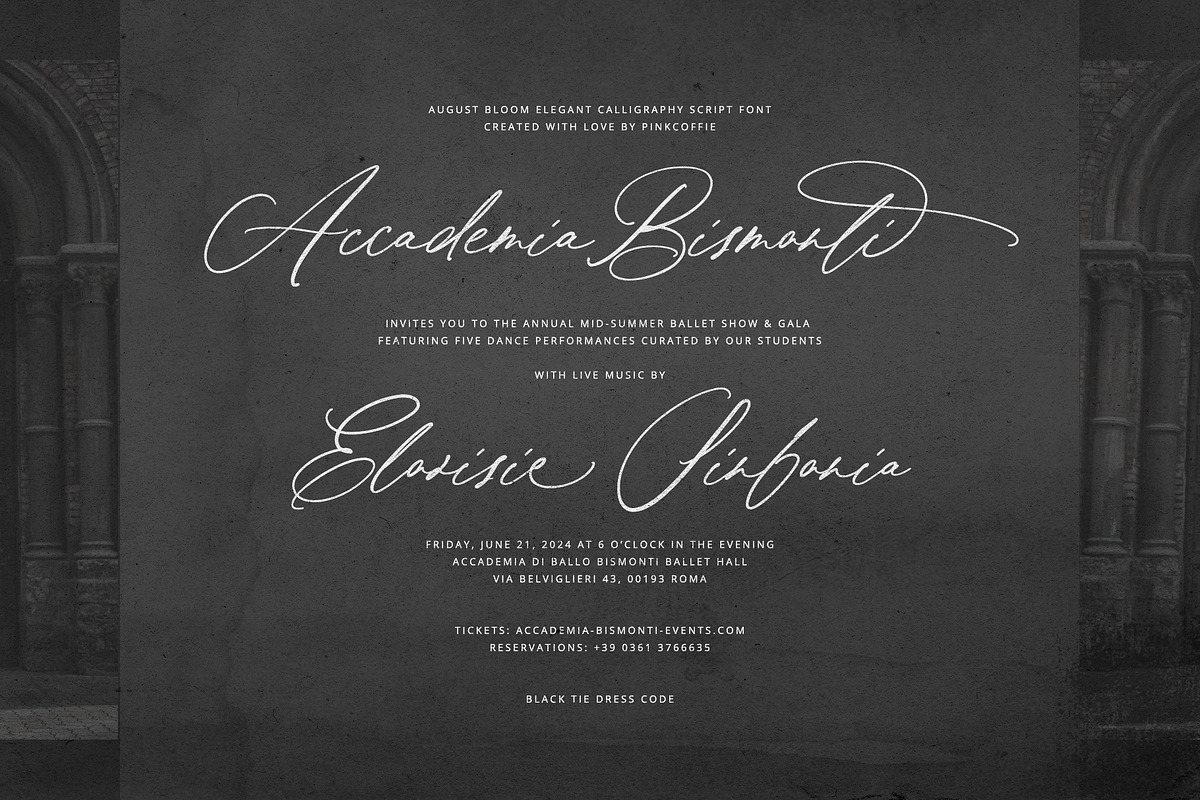 AUGUST BLOOM ELEGANT CALLIGRAPHY SCRIPT FONT
CREATED WITH LOVE BY PINKCOFFIE
Accademia Bismonti
INVITES YOU TO THE ANNUAL MID-SUMMER BALLET SHOW & GALA
FEATURING FIVE DANCE PERFORMANCES CURATED BY OUR STUDENTS
WITH LIVE MUSIC BY
Elorisie Sinfonia
FRIDAY, JUNE 21, 2024 AT 6 O'CLOCK IN THE EVENING
ACCADEMIA DI BALLO BISMONTI BALLET HALL
VIA BELVIGLIERI 43, 00193 ROMA
TICKETS: ACCADEMIA-BISMONTI-EVENTS.COM
RESERVATIONS: +39 0361 3766635
BLACK TIE DRESS CODE